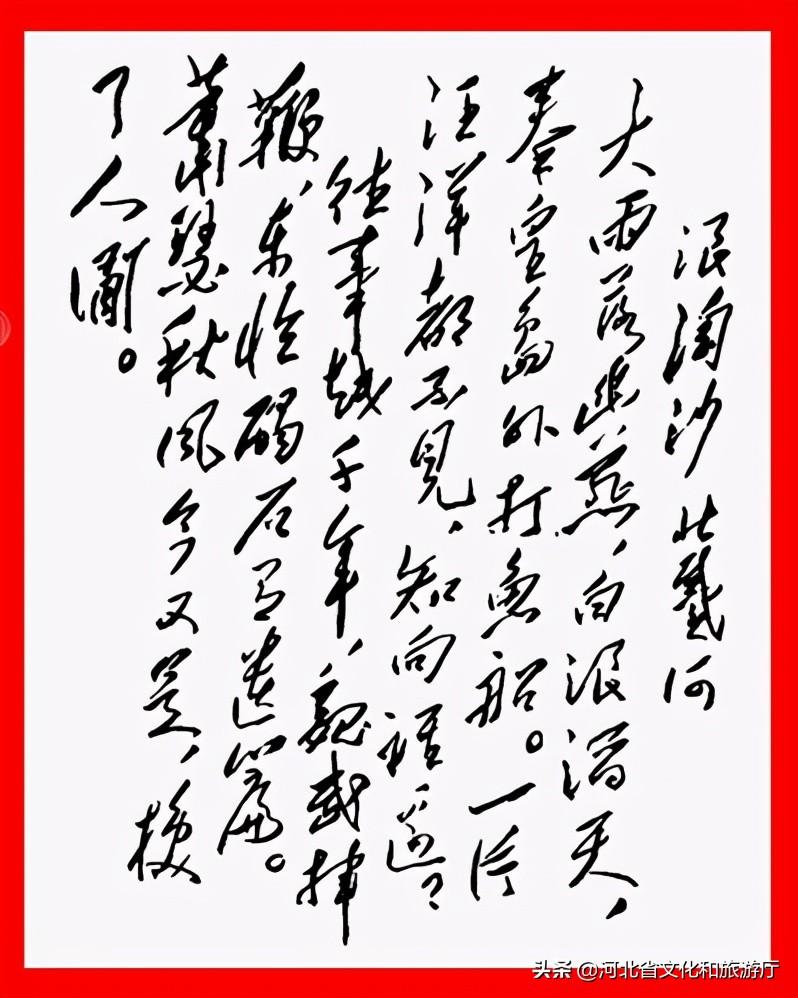 浪淘沙 北戴河
大雨落幽燕，白浪滔天，
秦皇岛外打鱼船。一片
汪洋都不见，知向谁边？
往事越千年，魏武挥
鞭，东临碣石有遗篇。
萧瑟秋风今又是，换
了人间。
头条 @河北省文化和旅游厅